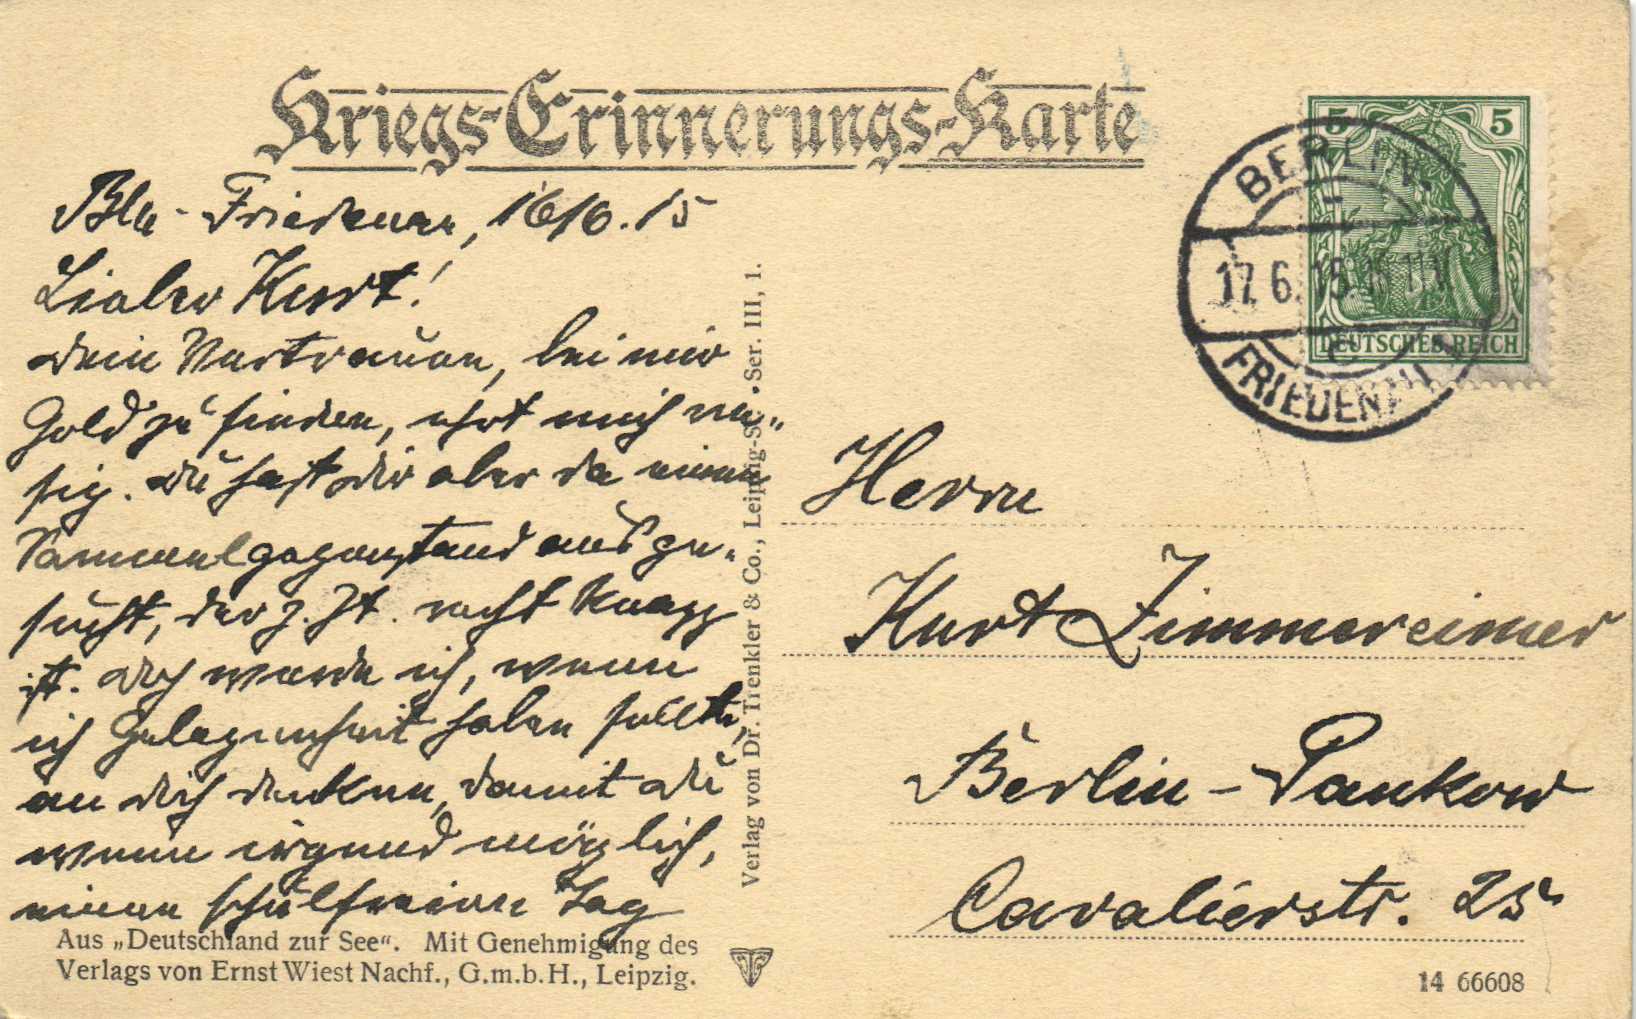 Kriegs-Erinnerungs-Karte
Bln-Friedenau, 16/6.15
Lieber Kurt!
Dein Vertrauen, bei mir
Gold zu finden, ehrt mich rie-
sig. Du hast dir aber da einen
Sammelgegenstand ausge-
sucht, der z. Zt. recht knapp
ist. Doch werde ich, wenn
ich Gelegenheit haben sollte,
an dich denken, damit du
wenn irgend möglich,
einen schulfreien Tag
Aus „Deutschland zur See“. Mit Genehmigung des
Verlags von Ernst Wiest Nachf., G.m.b.H., Leipzig.
Verlag von Dr. Trenkler & Co., Leipzig-St. • Ser. III, 1.
5 5
DEUTSCHES REICH
BERLIN
17.6.15
FRIEDENAU
Herrn
Kurt Zimmereimer
Berlin-Pankow
Cavalierstr. 25
14 66608